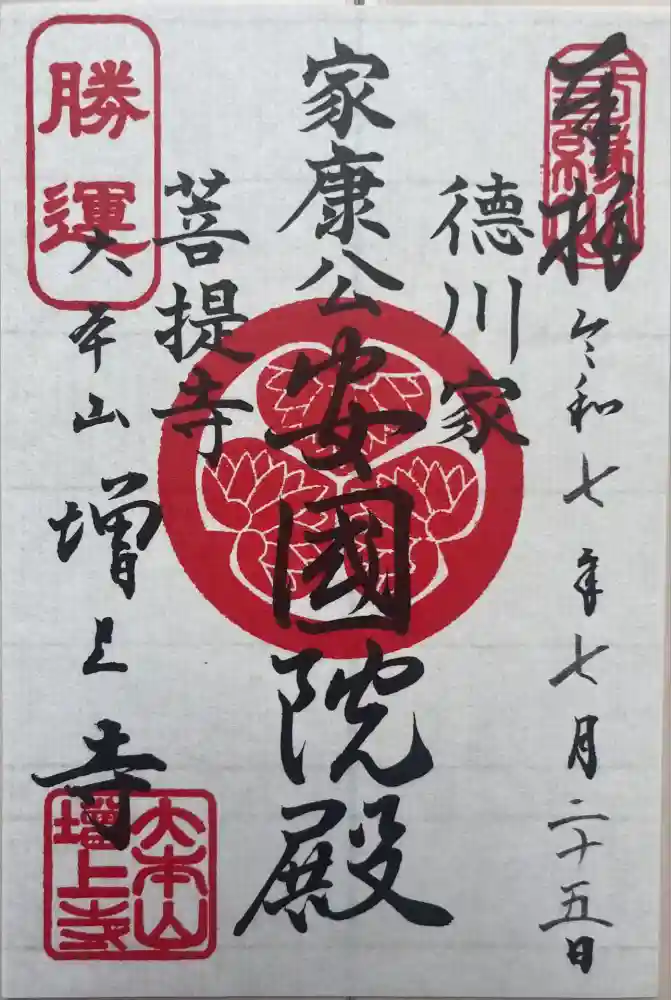 奉拝
令和七年七月二十五日
徳川家
家康公安國院殿
菩提寺
大本山増上寺
勝運
大本山
増上寺